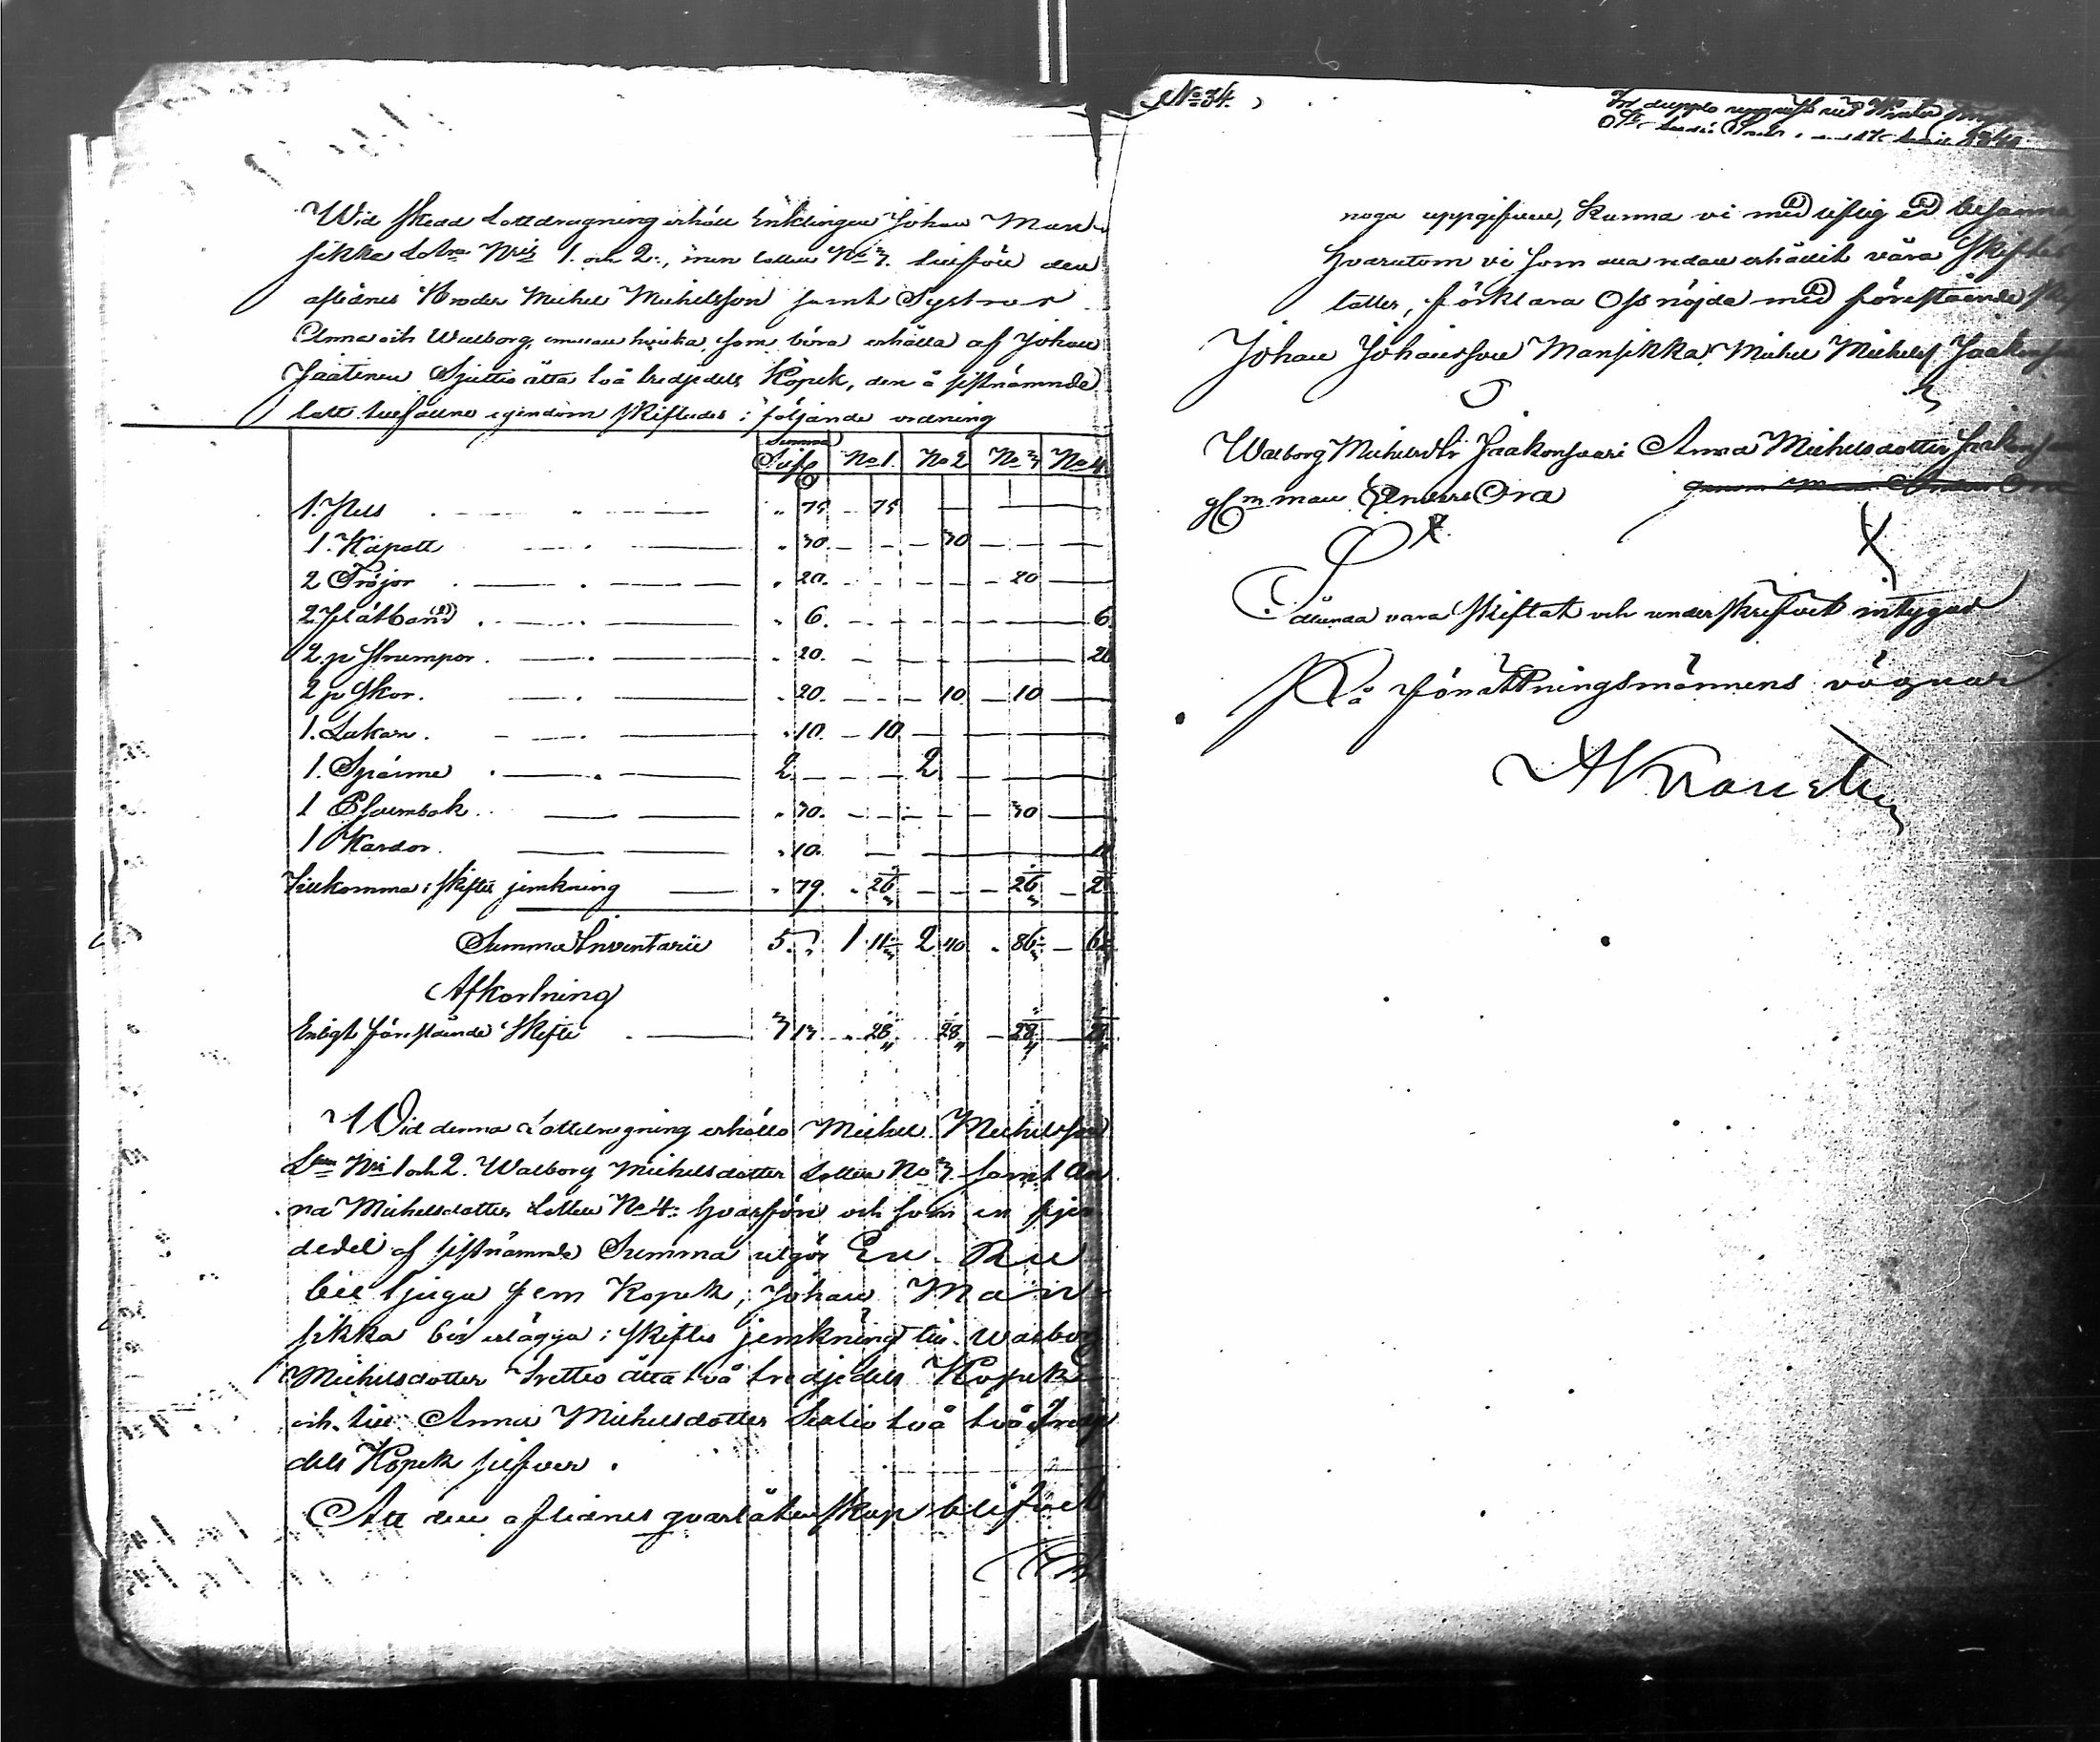 Wid skedd Lottdragning erhöll Enklingen Johan Man-
sikka Lotterne Nris 1. och 2., men lotten No 3. tillföll den
aflidnes Broder Michel Michelsson samt Systrar
Anna och Walborg, som böra erhålla af Johan
Jäätinen Sjuttio åtta två tredjedels Kopek, den å sistnämnde
lott tillfallne egendom skiftades i följande ordning
Summa Silfr No 1. No 2 No 3 No 4
1. Pels " 75 75
1. Kapott " 30 30
2 Tröjor " 20 20
2 " 6. 6
2 p Strumpor " 20. 20
2 p Skor. " 20 10 10
1. Lakan. " 10 10
1. Spänne 2 2
1 Psalmbok " 30. 30
1 Kardor " 10. 10
Tillkomma i skiftes jemkning " 79. 26 26 2
Summa Inventarii 5. 2. 1 11 2 40 " 86 6
Afkortning
Enligt förestående Skifte 3 13 28 28 28 28
Vid denna Lottdragning erhöllo Michel Michelsson
Ltterne Nris 1 och 2. Walborg Michelsdotter Lotten No 3 samt An
na Michelsdotter Lotten No 4: hvarföre och som en fjer
dedel af sistnämnde Summa utgör En Ru
bel tjugu fem Kopek, Johan Man
sikka bör erlägga i skiftes jemkning till Walborg
Michelsdotter Trettio åtta två tredjedels Kopek
och till Anna Michelsdotter Sextio två två tredje
dels Kopek silfver.
Att den aflidnes qvarlåtenskap blifvit
No 34.
In duplo uppvist vid Winter
noga uppgifven, kunna vi med liflig ed besanna,
hvarutom vi som redan erhållit våra Skiftes
lotter, förklara Oss nöjda med förestående
Johan Johansson Mansikka Michel Michels
Walborg Michelsdtr Jaakonsaari Anna Michelsdotter
gm man Anders Ora genom man Anders Ora
Sålunda vara skiftat och underskrifvet intygar
På förrättningsmännens vägnar